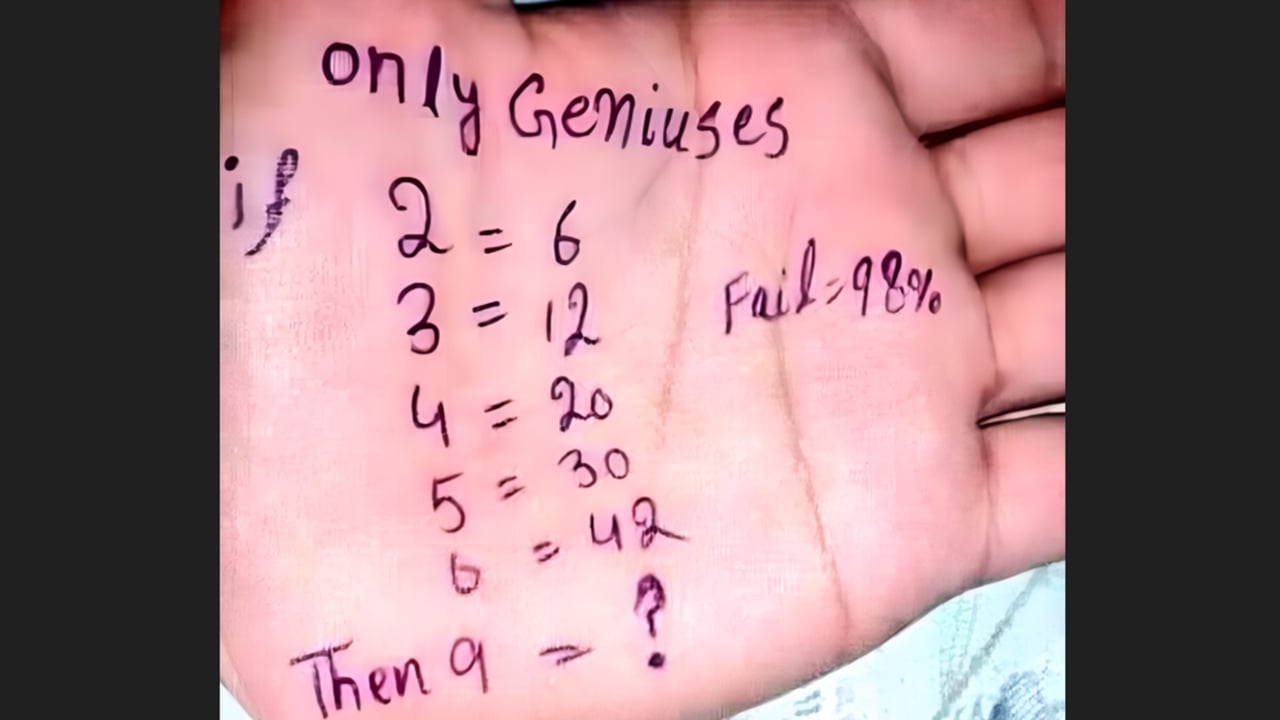 only Geniuses
if
2 = 6
3 = 12
Fail = 98%
4 = 20
5 = 30
6 = 42
Then 9 = ?